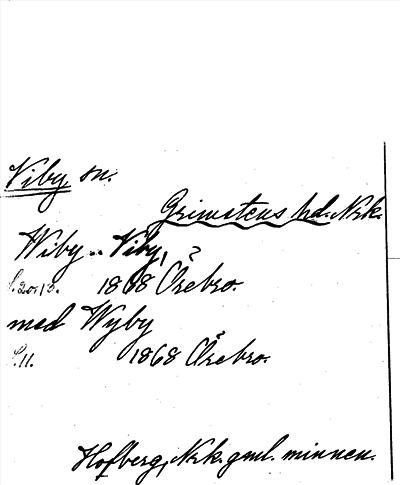 Viby sn.
Grimstens hd. Nrk.
Wiby .. Viby, ?
s. 20, 13. 1868 Örebro.
med Wyby
s. 11. 1868 Örebro.
Hofberg, Nrk. gml. minnen.